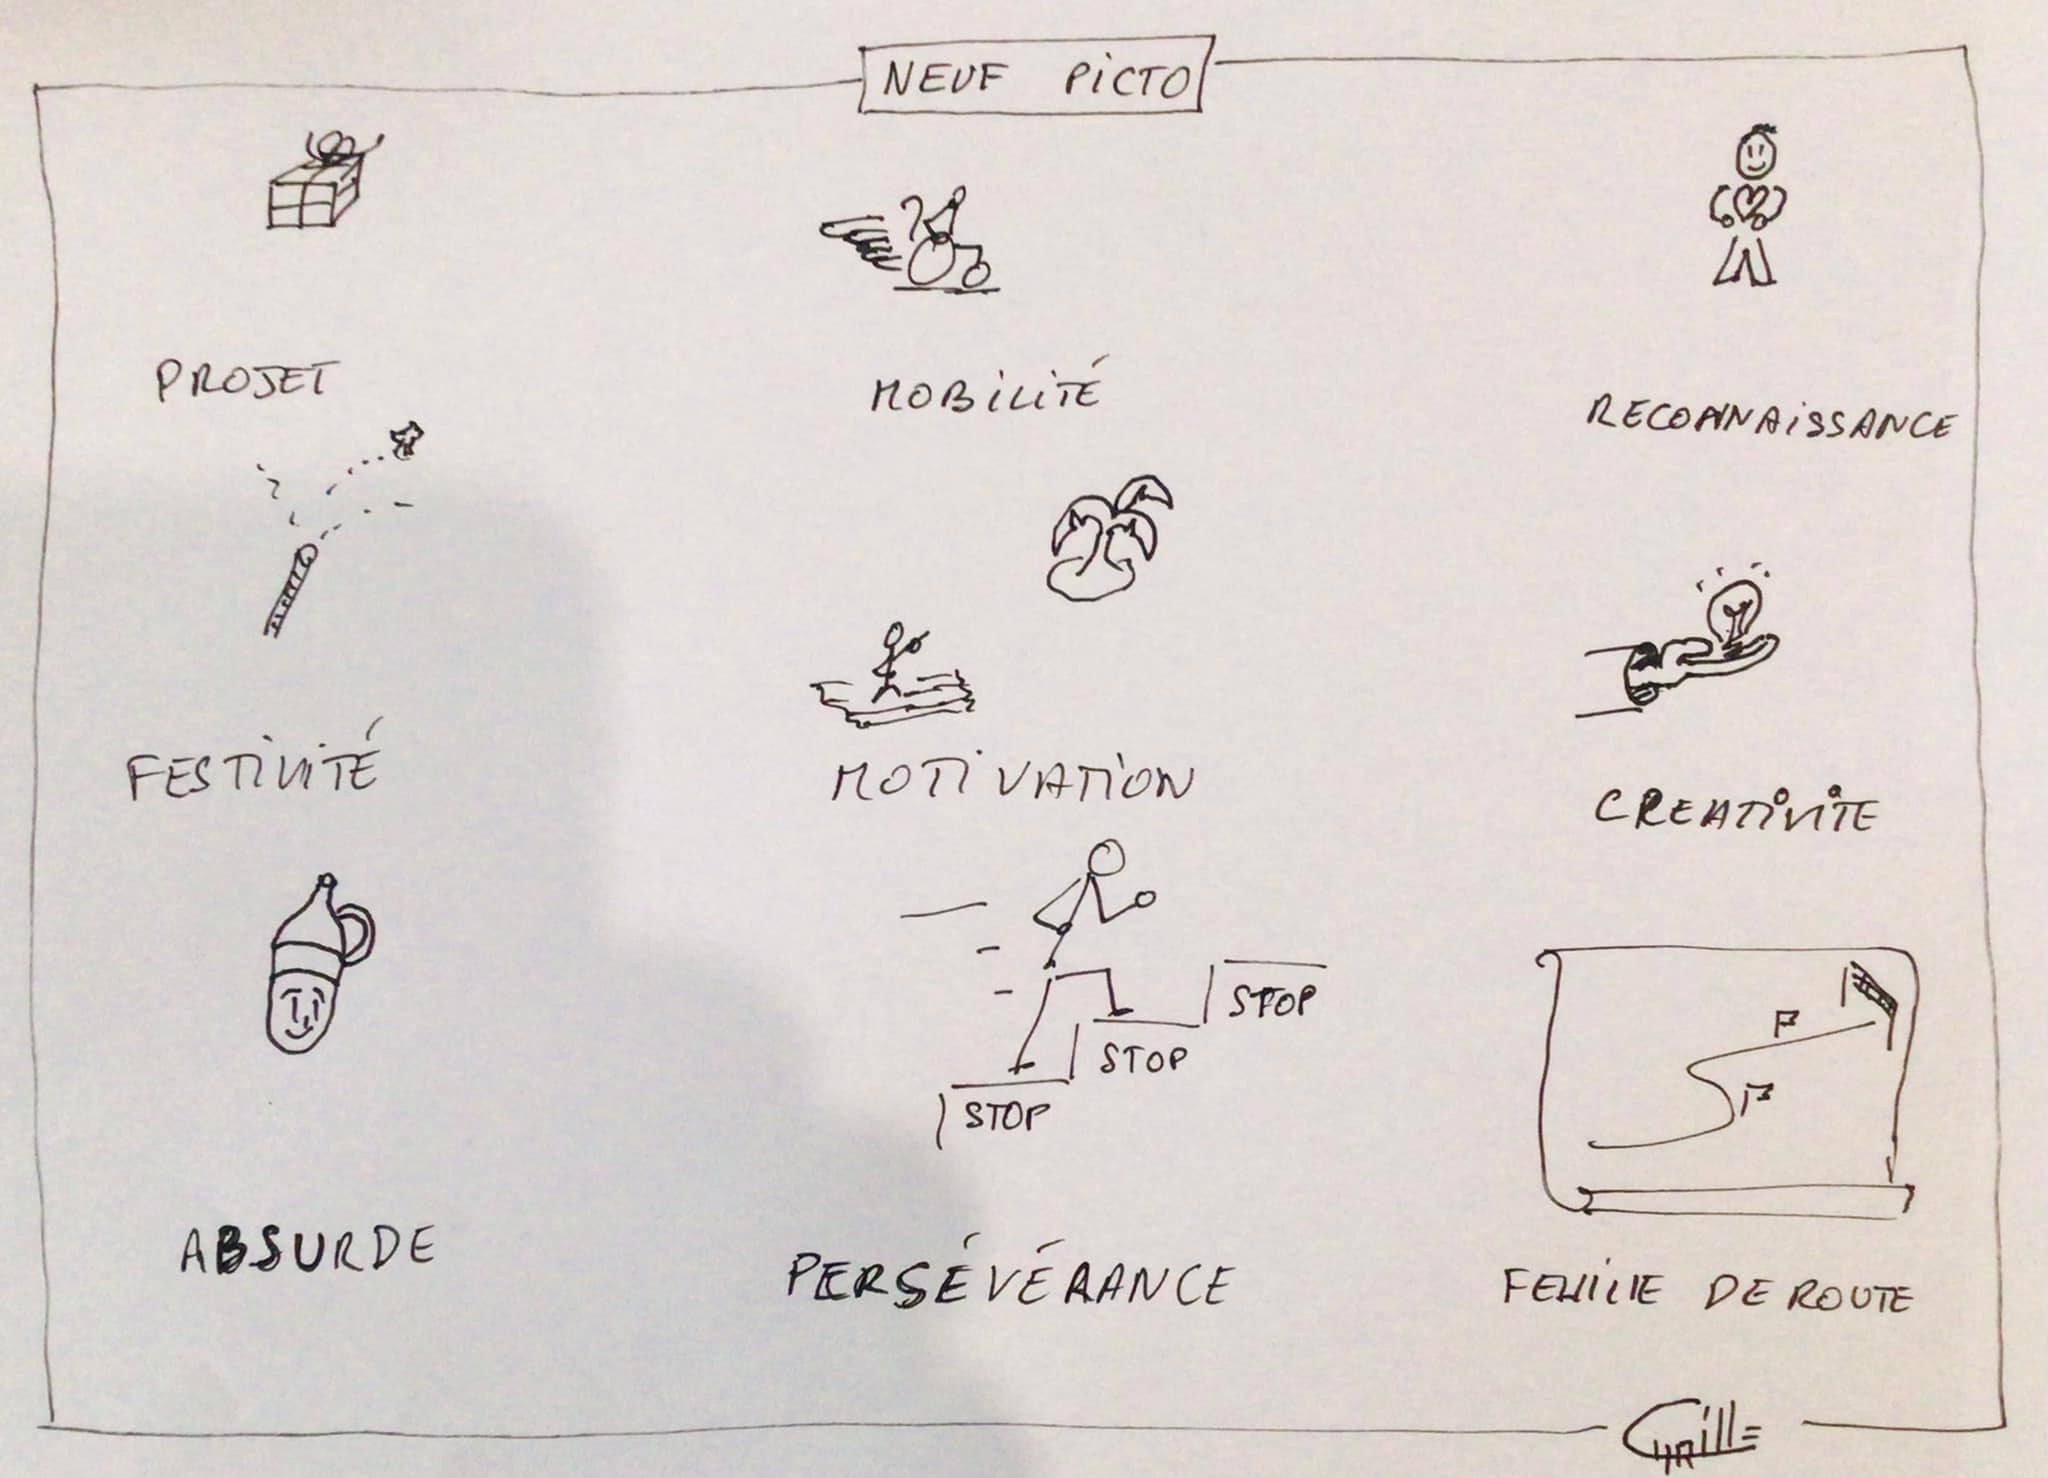 NEUF PICTO
PROJET
MOBILITÉ
RECONNAISSANCE
FESTIVITÉ
MOTIVATION
CREATIVITE
STOP
STOP
STOP
ABSURDE
PERSÉVÉRANCE
FEUILLE DE ROUTE
Cyrille